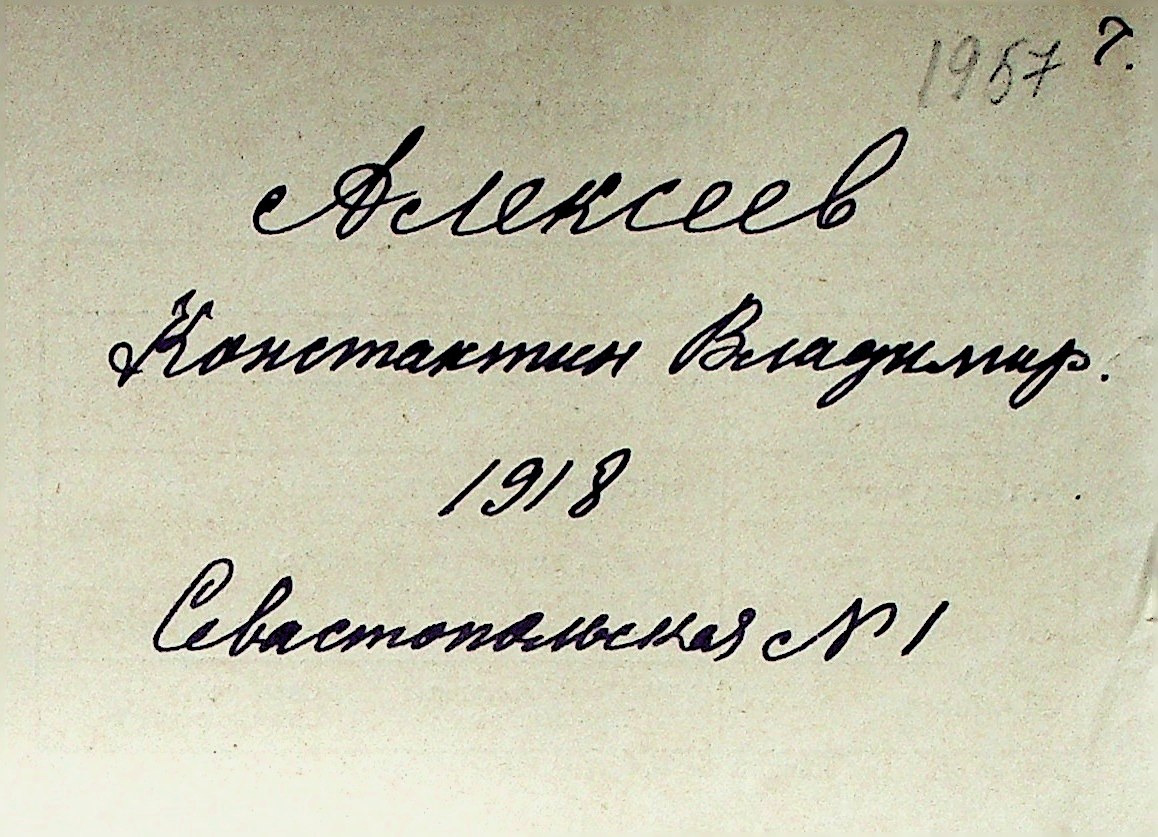 1957 г.
Алексеев
Константин Владимир.
1918
Севастопольская № 1